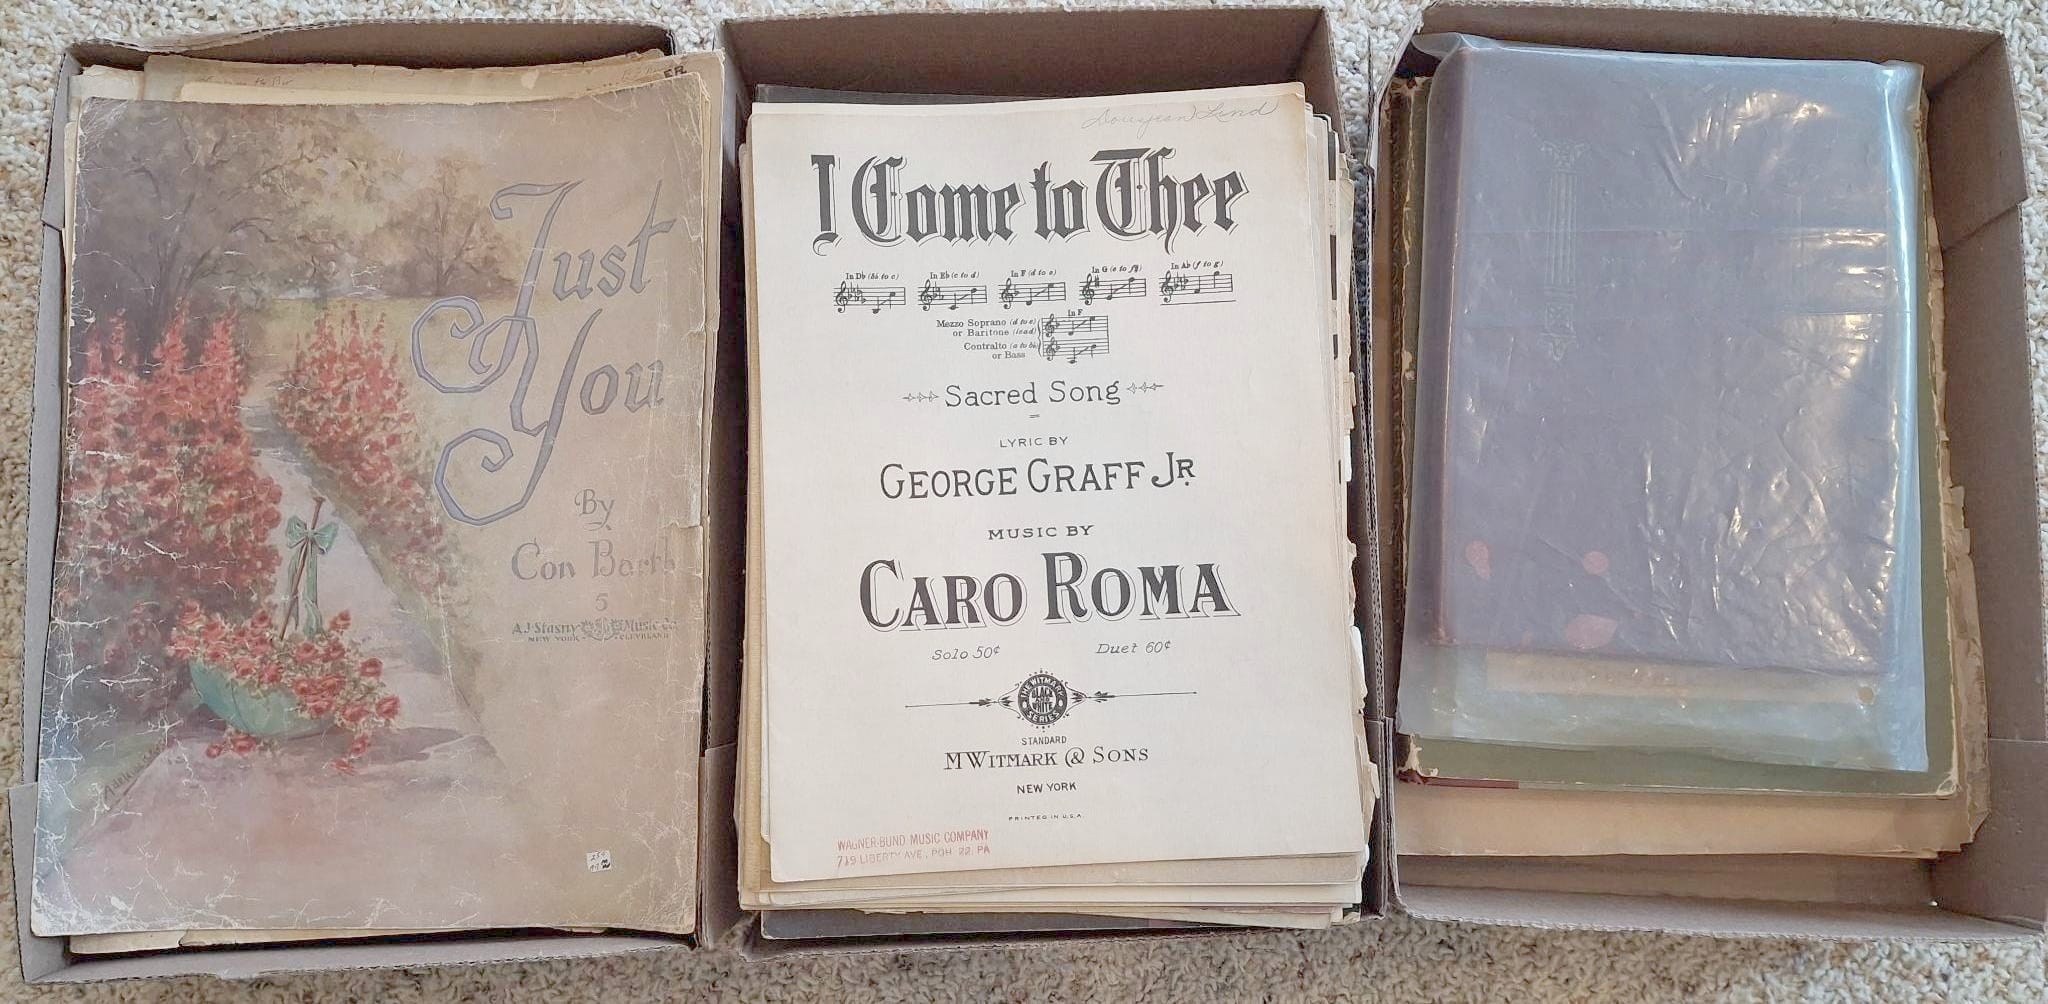 ER
Just
You
By
Con Barth
5
A.J. Stasny Music Co
NEW YORK - CLEVELAND
Land
I Come to Thee
In D♭ (b♭ to c) In E♭ (c to d) In F (d to e) In G (e to f♯) In A♭ (f to g)
In F
Mezzo Soprano (d to e)
or Baritone (lead)
Contralto (a to b♭)
or Bass
Sacred Song
LYRIC BY
GEORGE GRAFF JR.
MUSIC BY
CARO ROMA
Solo 50¢ Duet 60¢
THE WITMARK
BLACK
AND
WHITE
SERIES
STANDARD
M WITMARK & SONS
NEW YORK
PRINTED IN U.S.A.
WAGNER-BUND MUSIC COMPANY
719 LIBERTY AVE., PGH. 22, PA